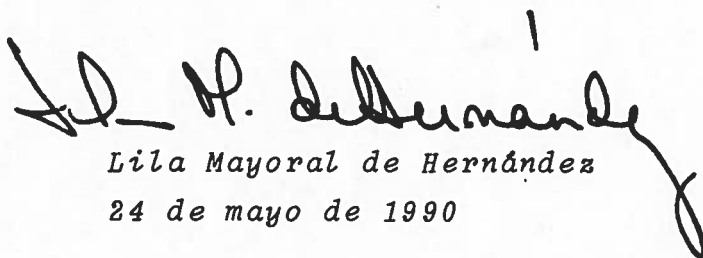 Lila M. de Hernández
Lila Mayoral de Hernández
24 de mayo de 1990